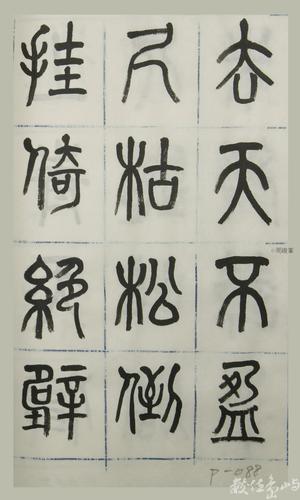 去天不盈
尺枯松倒
挂倚絕壁
p-088